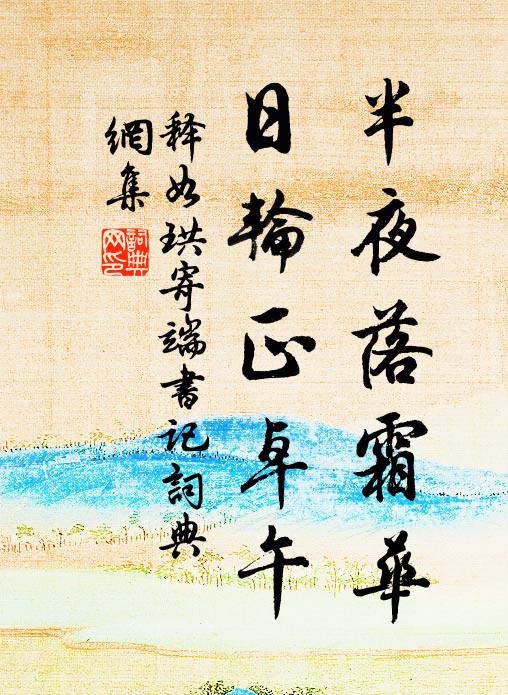 半夜落霜華
日輪正卓午
释如珙寄端書记詞典
網集
詞典網印